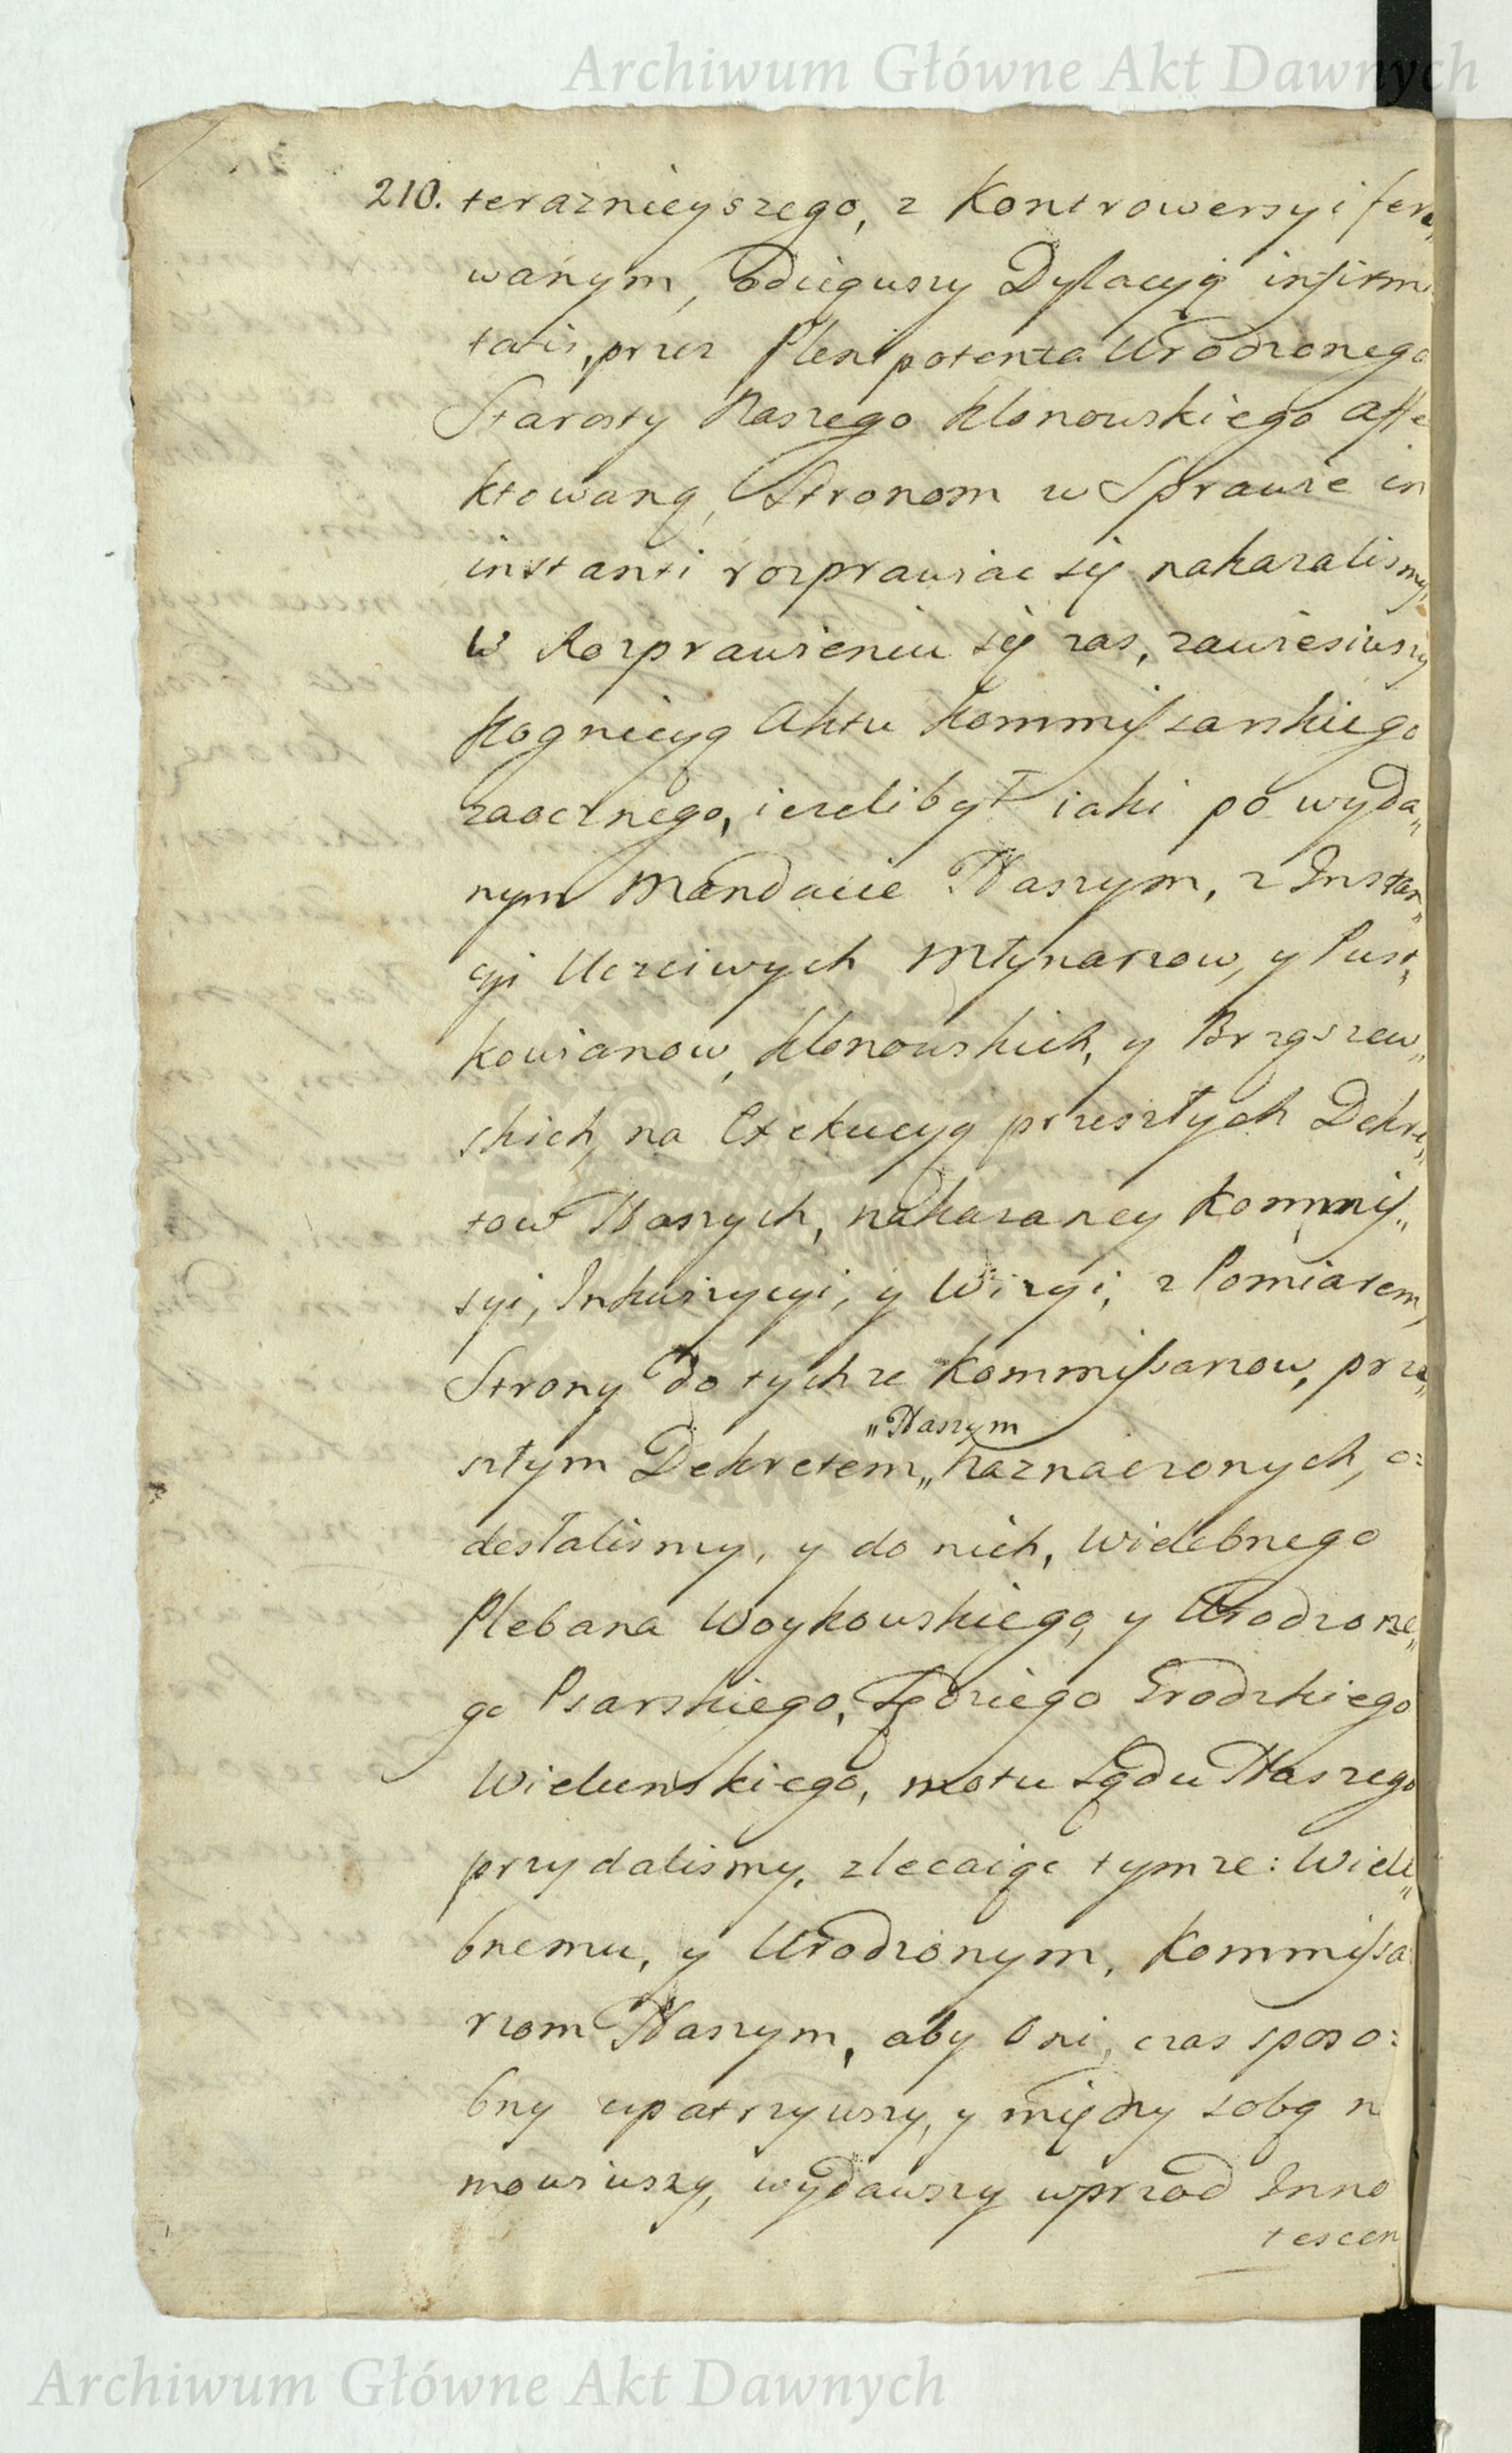 Archiwum Główne Akt Dawnych
210. teraznieyszego, z Kontrowersyi fero„
wanym, odiąguszy Dylacyią infirmi
tatis, przez Plenipotenta Urodzonego
Starosty Naszego Klonowskiego affe
ktowaną, Stronom w Sprawie in
instanti rozprawiac się nakazalismy,
W Rozprawieniu się zas, zawiesiwszy
Kognicyą Aktu Kommissarskiego
zaocznego, iezeli był iaki po wyda„
nym Mandacie Naszym, z Instan„
cyi Uczciwych Młynarzow, y Pust„
kowianow, Klonowskich, y Brząszew„
skich, na Exekucyą przeszłych Dekre„
tow Naszych, nakazaney Kommis„
syi, Inkwizycyi, y Wizyi, z Pomiarem,
Strony do tychze Kommissarzow, prze„
„Naszym
szłym Dekretem„ naznaczonych, o:
desłalismy, y do nich, Wielebnego
Plebana Woykowskiego, y Urodzone„
go Psarskiego, Sędziego Grodzkiego
Wielunskiego, motu Sądu Naszego
przydalismy, zlecaiąc tymze: Wiele„
bnemu, y Urodzonym, Kommissa
rzom Naszym, aby Oni, czas sposo:
bny upatrzywszy, y między sobą n
mowiwszy, wydawszy wprzod Inno
tescen
Archiwum Główne Akt Dawnych